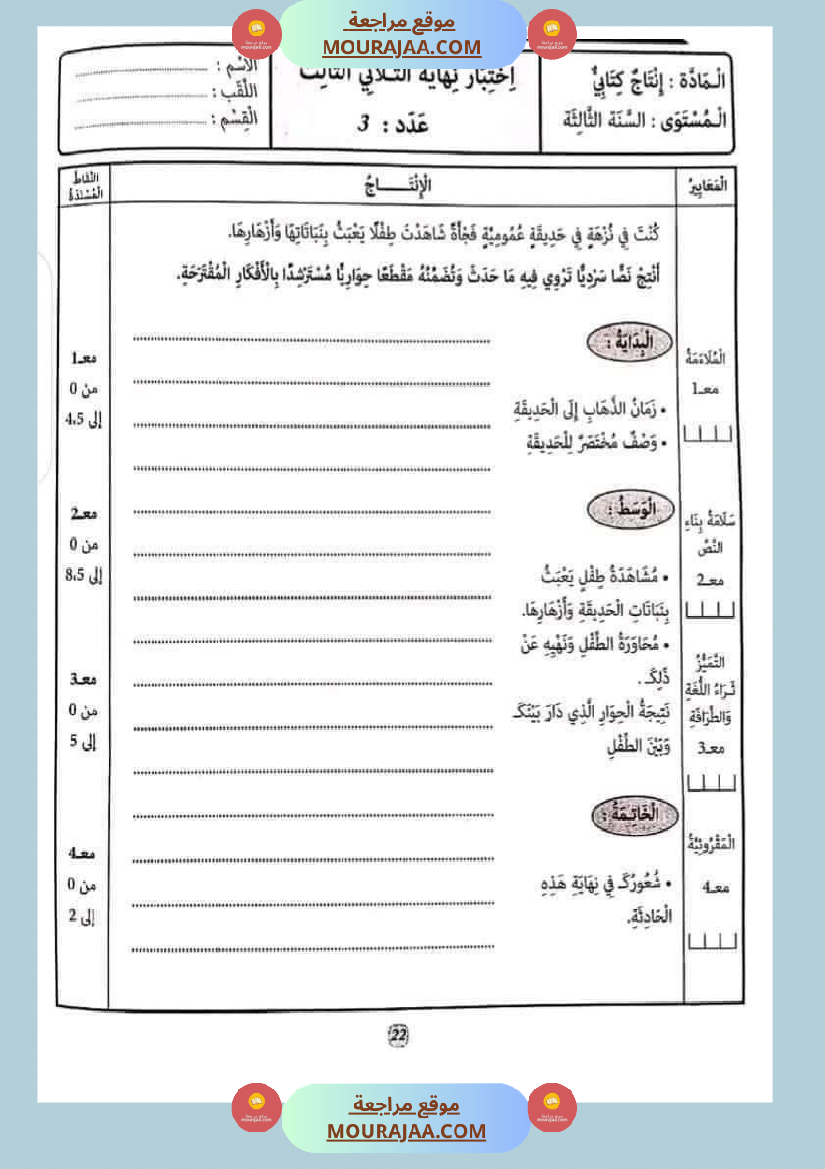 موقع مراجعة
MOURAJAA.COM
الْـمَادَّة : إِنْتَاجٌ كِتَابِيٌّ
الْـمُسْتَوَى : السَّنَة الثَّالِثَة
اِخْتِبَار نِهَايَة الثُّلَاثِيّ الثَّالِث
عَدَد : 3
الاسْم :
اللَّقَب :
الْقِسْم :
الْمَعَايِيرُ
الْإِنْتَـــــاجُ
النِّقَاطُ
الْمُسْنَدَةُ
كُنْتَ فِي نُزْهَةٍ فِي حَدِيقَةٍ عُمُومِيَّةٍ فَجْأَةً شَاهَدْتُ طِفْلًا يَعْبَثُ بِنَبَاتَاتِهَا وَأَزْهَارِهَا.
أَنْتِجْ نَصًّا سَرْدِيًّا تَرْوِي فِيهِ مَا حَدَثَ وَتُضَمِّنُهُ مَقْطَعًا حِوَارِيًّا مُسْتَرْشِدًا بِالْأَفْكَارِ الْمُقْتَرَحَةِ.
الْبِدَايَةُ :
• زَمَانُ الذَّهَابِ إِلَى الْحَدِيقَةِ
• وَصْفٌ مُخْتَصَرٌ لِلْحَدِيقَةِ
الْوَسَطُ :
• مُشَاهَدَةُ طِفْلٍ يَعْبَثُ
بِنَبَاتَاتِ الْحَدِيقَةِ وَأَزْهَارِهَا.
• مُحَاوَرَةُ الطِّفْلِ وَنَهْيِهِ عَنْ
ذَلِكَ .
نَتِيجَةُ الْحِوَارِ الَّذِي دَارَ بَيْنَكَ
وَبَيْنَ الطِّفْلِ
الْخَاتِمَةُ :
• شُعُورُكَ فِي نِهَايَةِ هَذِهِ
الْحَادِثَةِ.
الْمُلَاءَمَةُ
معـ1
سَلَامَةُ بِنَاءِ
النَّصِّ
معـ2
التَّمَيُّزُ
ثَـرَاءُ اللُّغَةِ
وَالطَّرَافَةِ
معـ3
الْمَقْرُوئِيَّةُ
معـ4
معـ1
من 0
إلى 4،5
معـ2
من 0
إلى 8،5
معـ3
من 0
إلى 5
معـ4
من 0
إلى 2
22
موقع مراجعة
MOURAJAA.COM